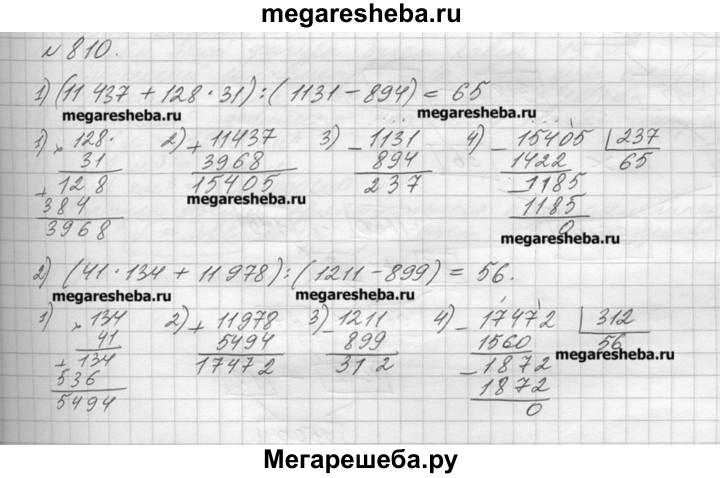 megaresheba.ru
N 810.
1) (11 437 + 128 · 31) : (1131 - 894) = 65
megaresheba.ru megaresheba.ru
1) × 128 2) + 11437 3) - 1131 4) - 15405 | 237
31 3968 894 1422 65
+ 128 15405 237 - 1185
384 1185
3968 0
megaresheba.ru megaresheba.ru megaresheba.ru
2) (41 · 134 + 11 978) : (1211 - 899) = 56.
megaresheba.ru megaresheba.ru
1) × 134 2) + 11978 3) - 1211 4) - 17472 | 312
41 5494 899 1560 56
+ 134 17472 312 - 1872
536 1872
5494 0
megaresheba.ru
Мегарешеба.ру